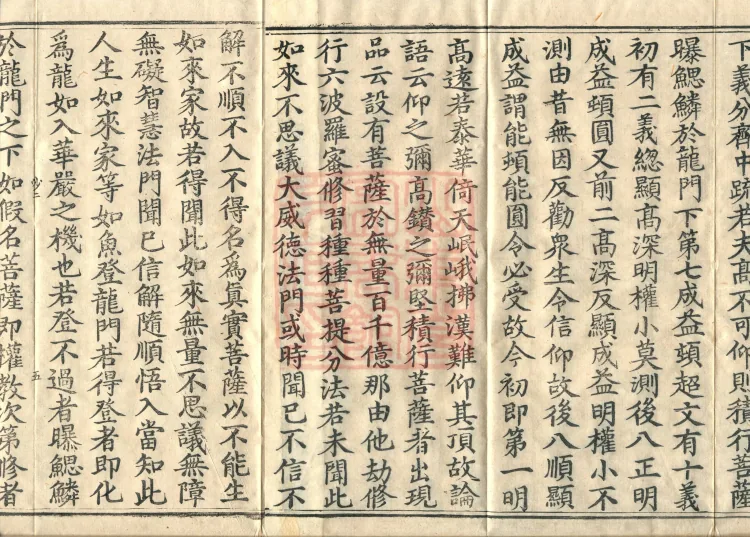 下義分齊中䟽若夫高不可仰則積行菩薩
曝鰓鱗於龍門下第七成益頓超文有十義
初有二義緫顯高深明權小莫測後八正明
成益頓圓又前二高深反顯成益明權小不
測由昔無因反勸衆生令信仰故後八順顯
成益謂能頓能圓令必受故今初即第一明
高遠若泰華倚天岷峨拂漢難仰其頂故論
語云仰之彌高鑽之彌堅積行菩薩者出現
品云設有菩薩於無量百千億那由他劫修
行六波羅蜜修習種種菩提分法若未聞此
如來不思議大威德法門或時聞已不信不
解不順不入不得名爲真實菩薩以不能生
如來家故若得聞此如來無量不思議無障
無礙智慧法門聞已信解隨順悟入當知此
人生如來家等如魚登龍門若得登者即化
爲龍如入華嚴之機也若登不過者曝鰓鱗
鈔二 五
於龍門之下如假名菩薩即權教次第修者